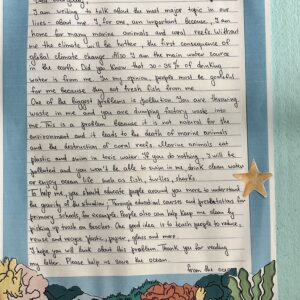 Dear everybody,
I am writing to talk about the most major topic in our
lives - about me. I, for one, am important because, I am
home for many marine animals and coral reefs. Without
me the climate will be hotter, the first consequence of
global climate change. Also I am the main water source
in the earth. Did you know that 30 - 35% of drinking
water is from me. In my opinion, people must be grateful
for me because they eat fresh fish from me.
One of the biggest problems is pollution. You are throwing
waste in me and you are dumping factory waste into
me. This is a problem because it is not natural for the
environment and it leads to the death of marine animals
and the destruction of coral reefs. Marine animals eat
plastic and swim in toxic water. If you do nothing, I will be
polluted and you won't be able to swim in me, drink clean water
or enjoy ocean life such as fish, turtles, sharks.
To help me, you should educate people around you more to understand
the gravity of the situation, through educational courses and presentations for
primary schools, for example. People also can help keep me clean by
picking up trash on beaches. One good idea is to teach people to reduce,
reuse and recycle plastic, paper, glass and more.
I hope you will think about this problem. Thank you for reading
my letter. Please help us save the ocean.
from the ocean